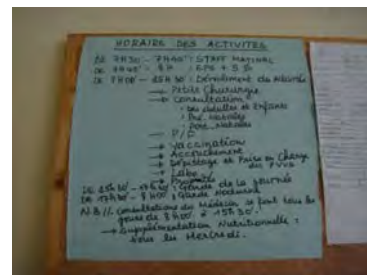 HORAIRE DES ACTIVITES
DE 7H30' - 7H40' : STAFF MATINAL
DE 7H40' - 8H : EPS +
DE - 15H30' : Déroulement des Activités
→ Petite Chirurgie
→ Consultation
• Les Adultes et Enfants
• Pré-Natales
• Post-Natales
→ P/P
→ Vaccination
→ Accouchement
→ Dépistage et Prise en Charge
des PVVS
→ Labo
→ Pharmacie
DE 15H30' - 17H00' : Garde de la journée
DE 17H00' - 7H00' : Garde Nocturne
N.B // Consultations du Médecin se font tous les
jours de 8H00' à 15H30'.
→ Supplémentation Nutritionnelle :
tous les Mercredi.